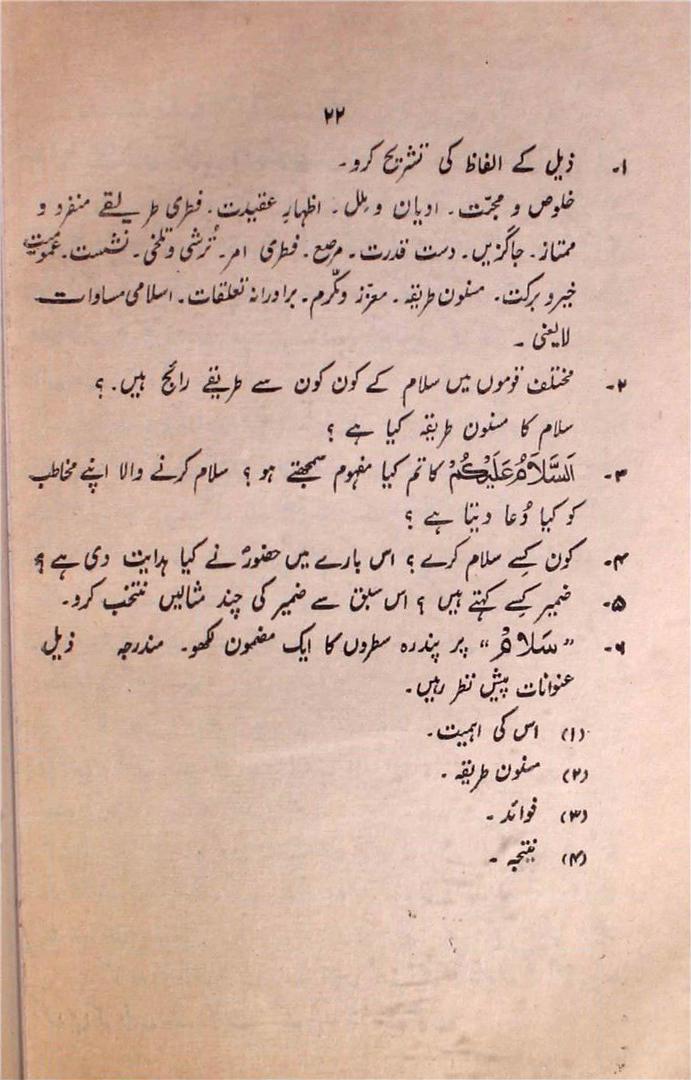 ۲۲
۱۔ ذیل کے الفاظ کی تشریح کرو۔
خلوص و محبّت۔ ادیان و ملل۔ اظہارِ عقیدت۔ فطری طریقے منفرد و
ممتاز۔ جاگزیں۔ دست قدرت۔ مرصع۔ فطری امر۔ تُرشی و تلخی۔ نشست۔ عمومیت
خیر و برکت۔ مسنون طریقہ۔ معزّز و مکّرم۔ برادرانہ تعلقات۔ اسلامی مساوات
لایعنی ۔
۲۔ مختلف قوموں میں سلام کے کون کون سے طریقے رائج ہیں۔؟
سلام کا مسنون طریقہ کیا ہے ؟
۳۔ اَلسَّلَامُ عَلَیْکُمْ کا تم کیا مفہوم سمجھتے ہو ؟ سلام کرنے والا اپنے مخاطب
کو کیا دُعا دیتا ہے ؟
۴۔ کون کسے سلام کرے ؟ اس بارے میں حضورؐ نے کیا ہدایت دی ہے ؟
۵۔ ضمیر کسے کہتے ہیں ؟ اس سبق سے ضمیر کی چند مثالیں منتخب کرو۔
۶۔ “سَلَامْ” پر پندرہ سطروں کا ایک مضمون لکھو۔ مندرجہ ذیل
عنوانات پیش نظر رہیں۔
(۱) اس کی اہمیت۔
(۲) مسنون طریقہ ۔
(۳) فوائد ۔
(۴) نتیجہ ۔